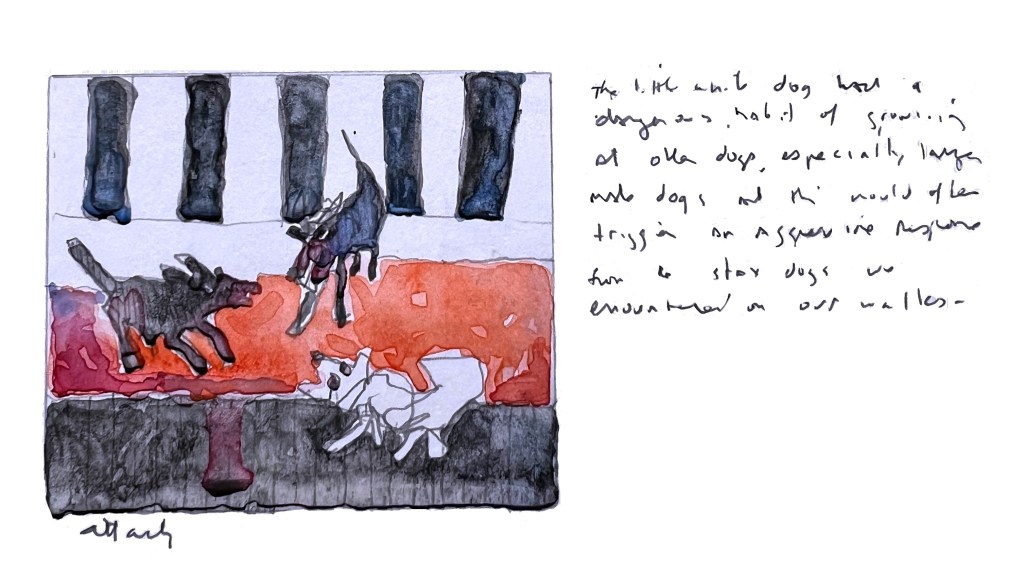 The little white dog had a
dangerous habit of growling
at other dogs, especially larger
male dogs and this would often
trigger an aggressive response
from the stray dogs we
encountered on our walks-
attack